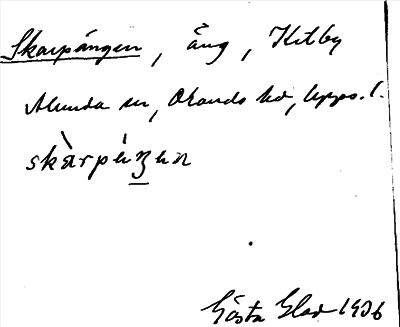 Skarpängen, äng, Kilby
Alunda sn, Olands hd, Upps. l.
skàrpéŋen
Gösta Glad 1936